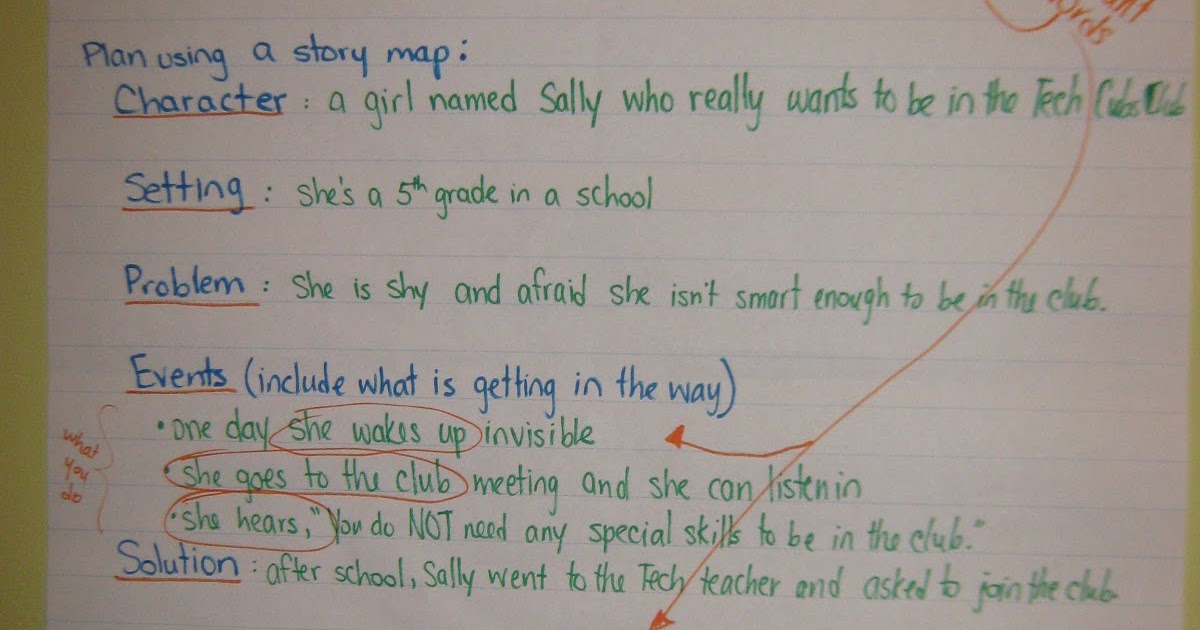 Plan using a story map:
Character : a girl named Sally who really wants to be in the Tech Cubs Club
Setting : She's a 5th grade in a school
Problem : She is shy and afraid she isn't smart enough to be in the club.
Events (include what is getting in the way)
• one day she wakes up invisible
• she goes to the club meeting and she can listen in
• she hears, "You do NOT need any special skills to be in the club."
what
you
do
Solution : after school, Sally went to the Tech teacher and asked to join the club.